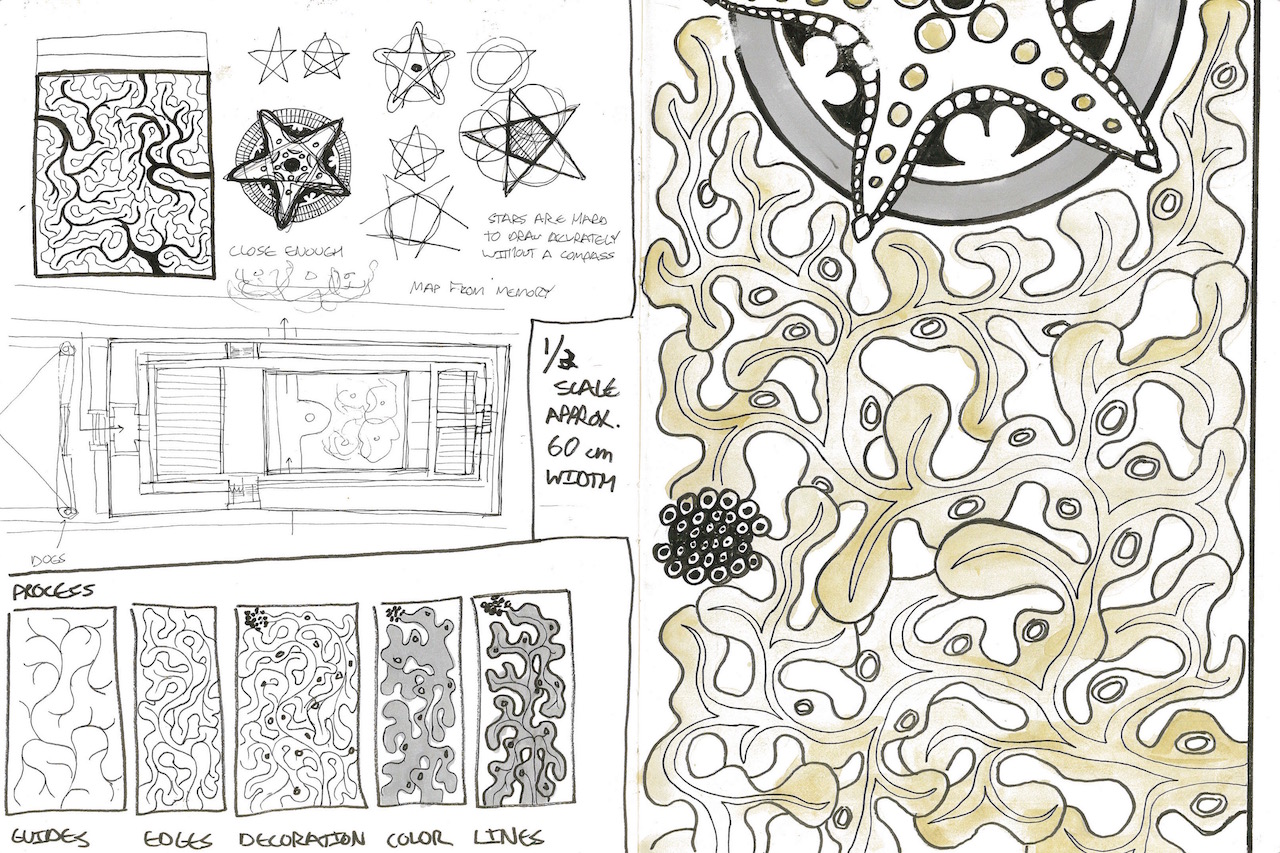 CLOSE ENOUGH
STARS ARE HARD
TO DRAW ACCURATELY
WITHOUT A COMPASS
MAP FROM MEMORY
1/2
SCALE
APPROX.
60 cm
WIDTH
DOGS
PROCESS
GUIDES
EDGES
DECORATION
COLOR
LINES